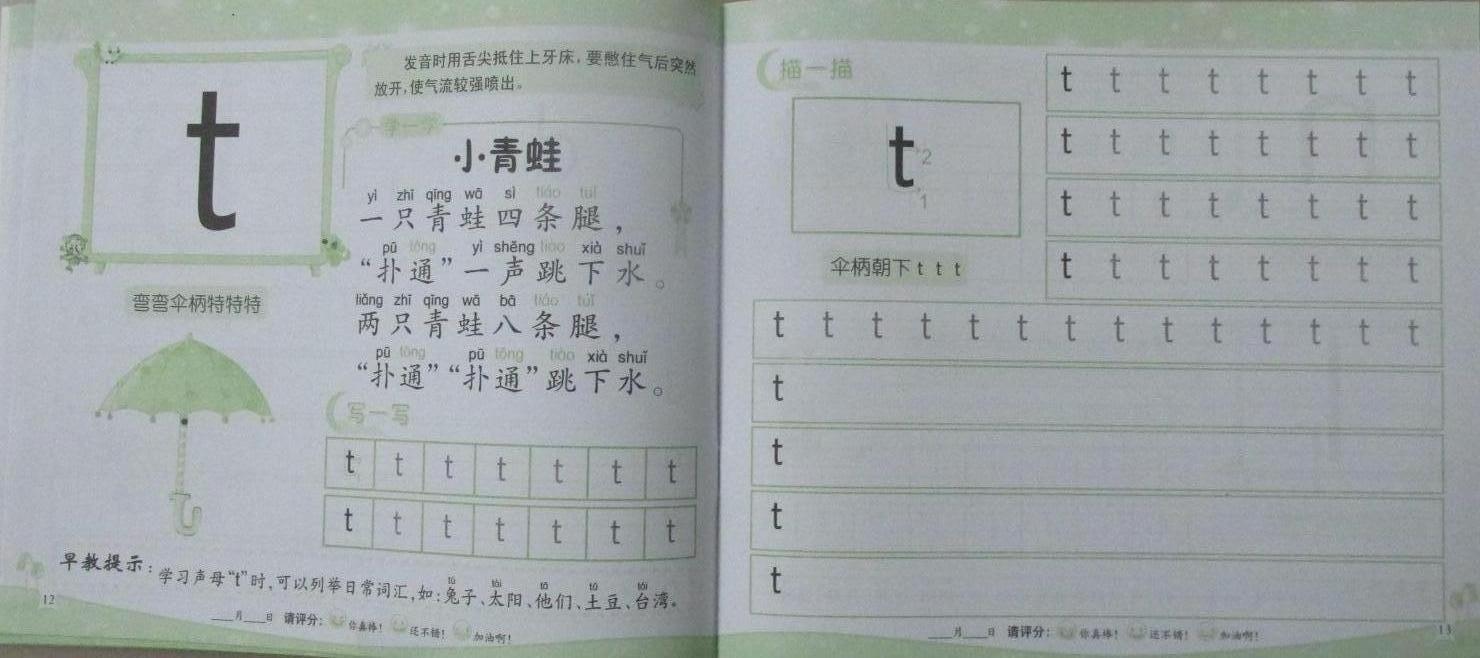 t
发音时用舌尖抵住上牙床，要憋住气后突然
放开，使气流较强喷出。
学一学
小青蛙
yì zhī qīng wā sì tiáo tuǐ
一只青蛙四条腿，
pū tōng yì shēng tiào xià shuǐ
“扑通”一声跳下水。
liǎng zhī qīng wā bā tiáo tuǐ
两只青蛙八条腿，
pū tōng pū tōng tiào xià shuǐ
“扑通”“扑通”跳下水。
弯弯伞柄特特特
写一写
t t t t t t t
t t t t t t t
tù tài tā tǔ tái
早教提示：学习声母“t”时，可以列举日常词汇，如：兔子、太阳、他们、土豆、台湾。
12
___月___日 请评分： 你真棒！ 还不错！ 加油啊！
描一描
t 2 1
伞柄朝下 t t t
t t t t t t t t
t t t t t t t t
t t t t t t t t
t t t t t t t t
t t t t t t t t t t t t t t
t
t
t
t
___月___日 请评分： 你真棒！ 还不错！ 加油啊！
13